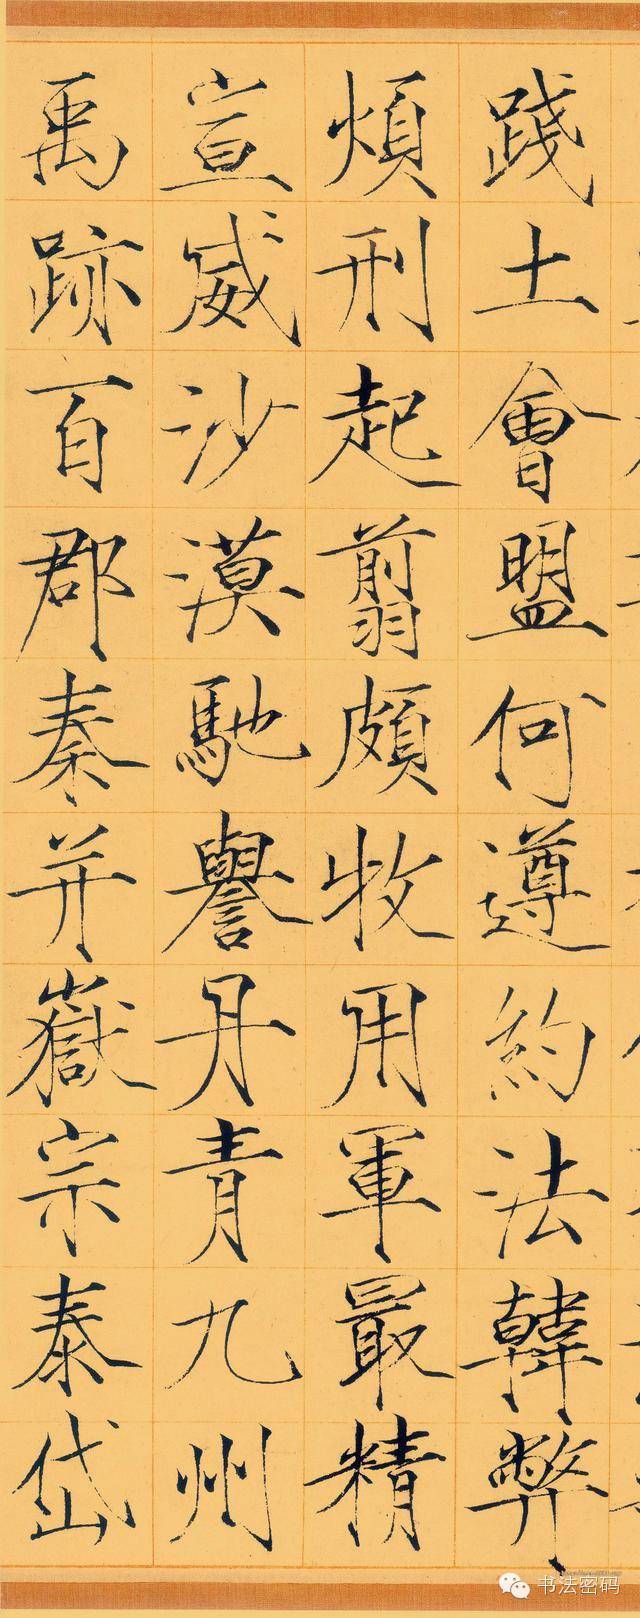 踐土會盟何遵約法韓弊
煩刑起翦頗牧用軍最精
宣威沙漠馳譽丹青九州
禹跡百郡秦并嶽宗泰岱
书法密码